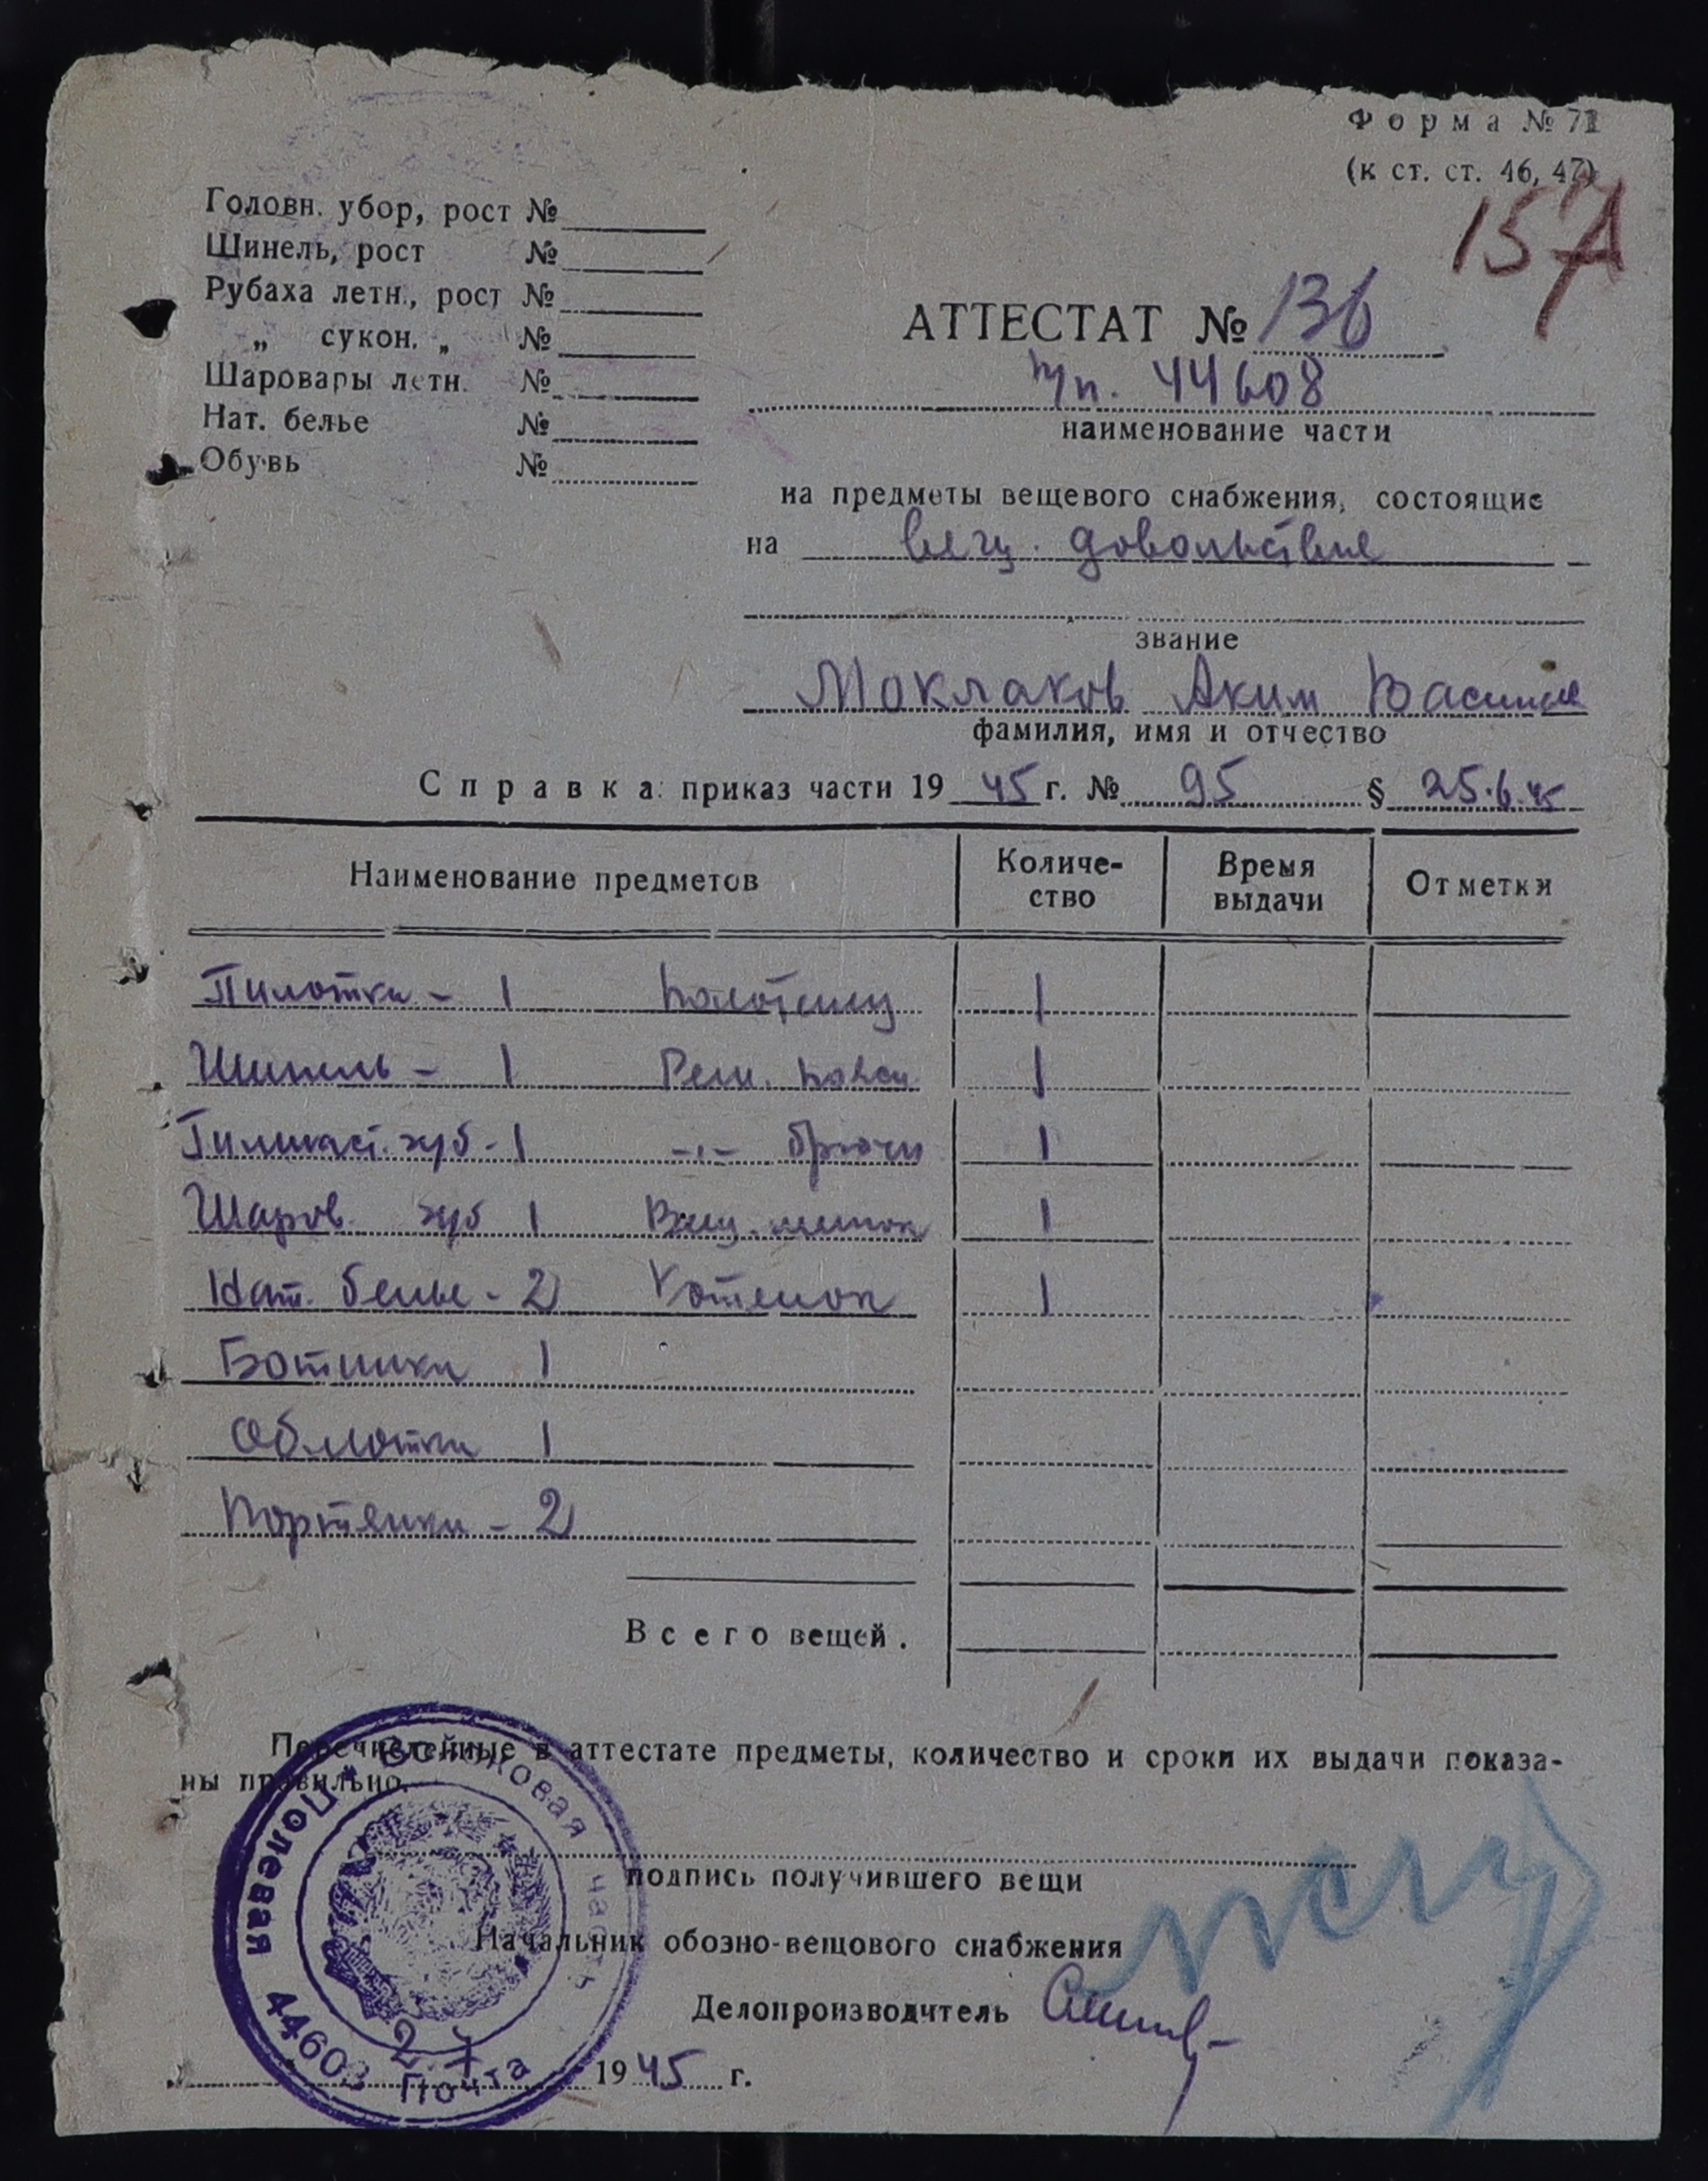 Форма № 71
(к ст. ст. 46, 47)
157А
Головн. убор, рост №
Шинель, рост №
Рубаха летн., рост №
„ сукон. „ №
Шаровары летн. №
Нат. белье №
Обувь №
АТТЕСТАТ № 136
п/п. 44608
наименование части
на предметы вещевого снабжения, состоящие
на вещ. довольствие
звание
Моклаков Аким Василье
фамилия, имя и отчество
Справка: приказ части 1945 г. № 95 § 25.6.45
Наименование предметов Количе- Время Отметки
ство выдачи
Пилотка - 1 Полотенц 1
Шинель - 1 Рем. поясн 1
Гимнаст. х/б - 1 -"- брючн 1
Шаров. х/б 1 Вещ. мешок 1
Нат. белье - 2 Котелок 1
Ботинки 1
Обмотки 1
Портянки - 2
Всего вещей.
Перечисленные в аттестате предметы, количество и сроки их выдачи показа-
ны правильно.
подпись получившего вещи
Начальник обозно-вещового снабжения
Делопроизводитель
2.7 1945 г.
Войсковая часть
Полевая почта 44608